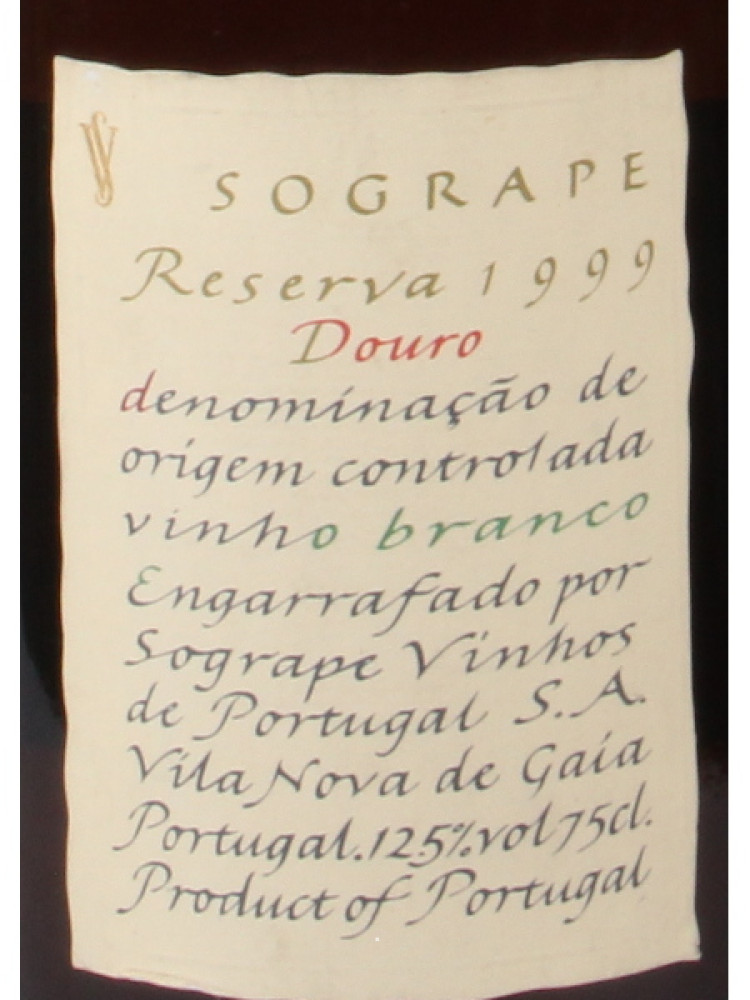 SOGRAPE
Reserva 1999
Douro
denominação de
origem controlada
vinho branco
Engarrafado por
Sogrape Vinhos
de Portugal S.A.
Vila Nova de Gaia
Portugal.12,5%vol 75cl.
Product of Portugal